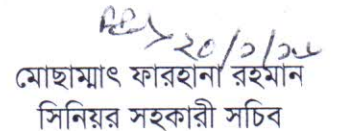 ২০/১/২৬
মোছাম্মাৎ ফারহানা রহমান
সিনিয়র সহকারী সচিব